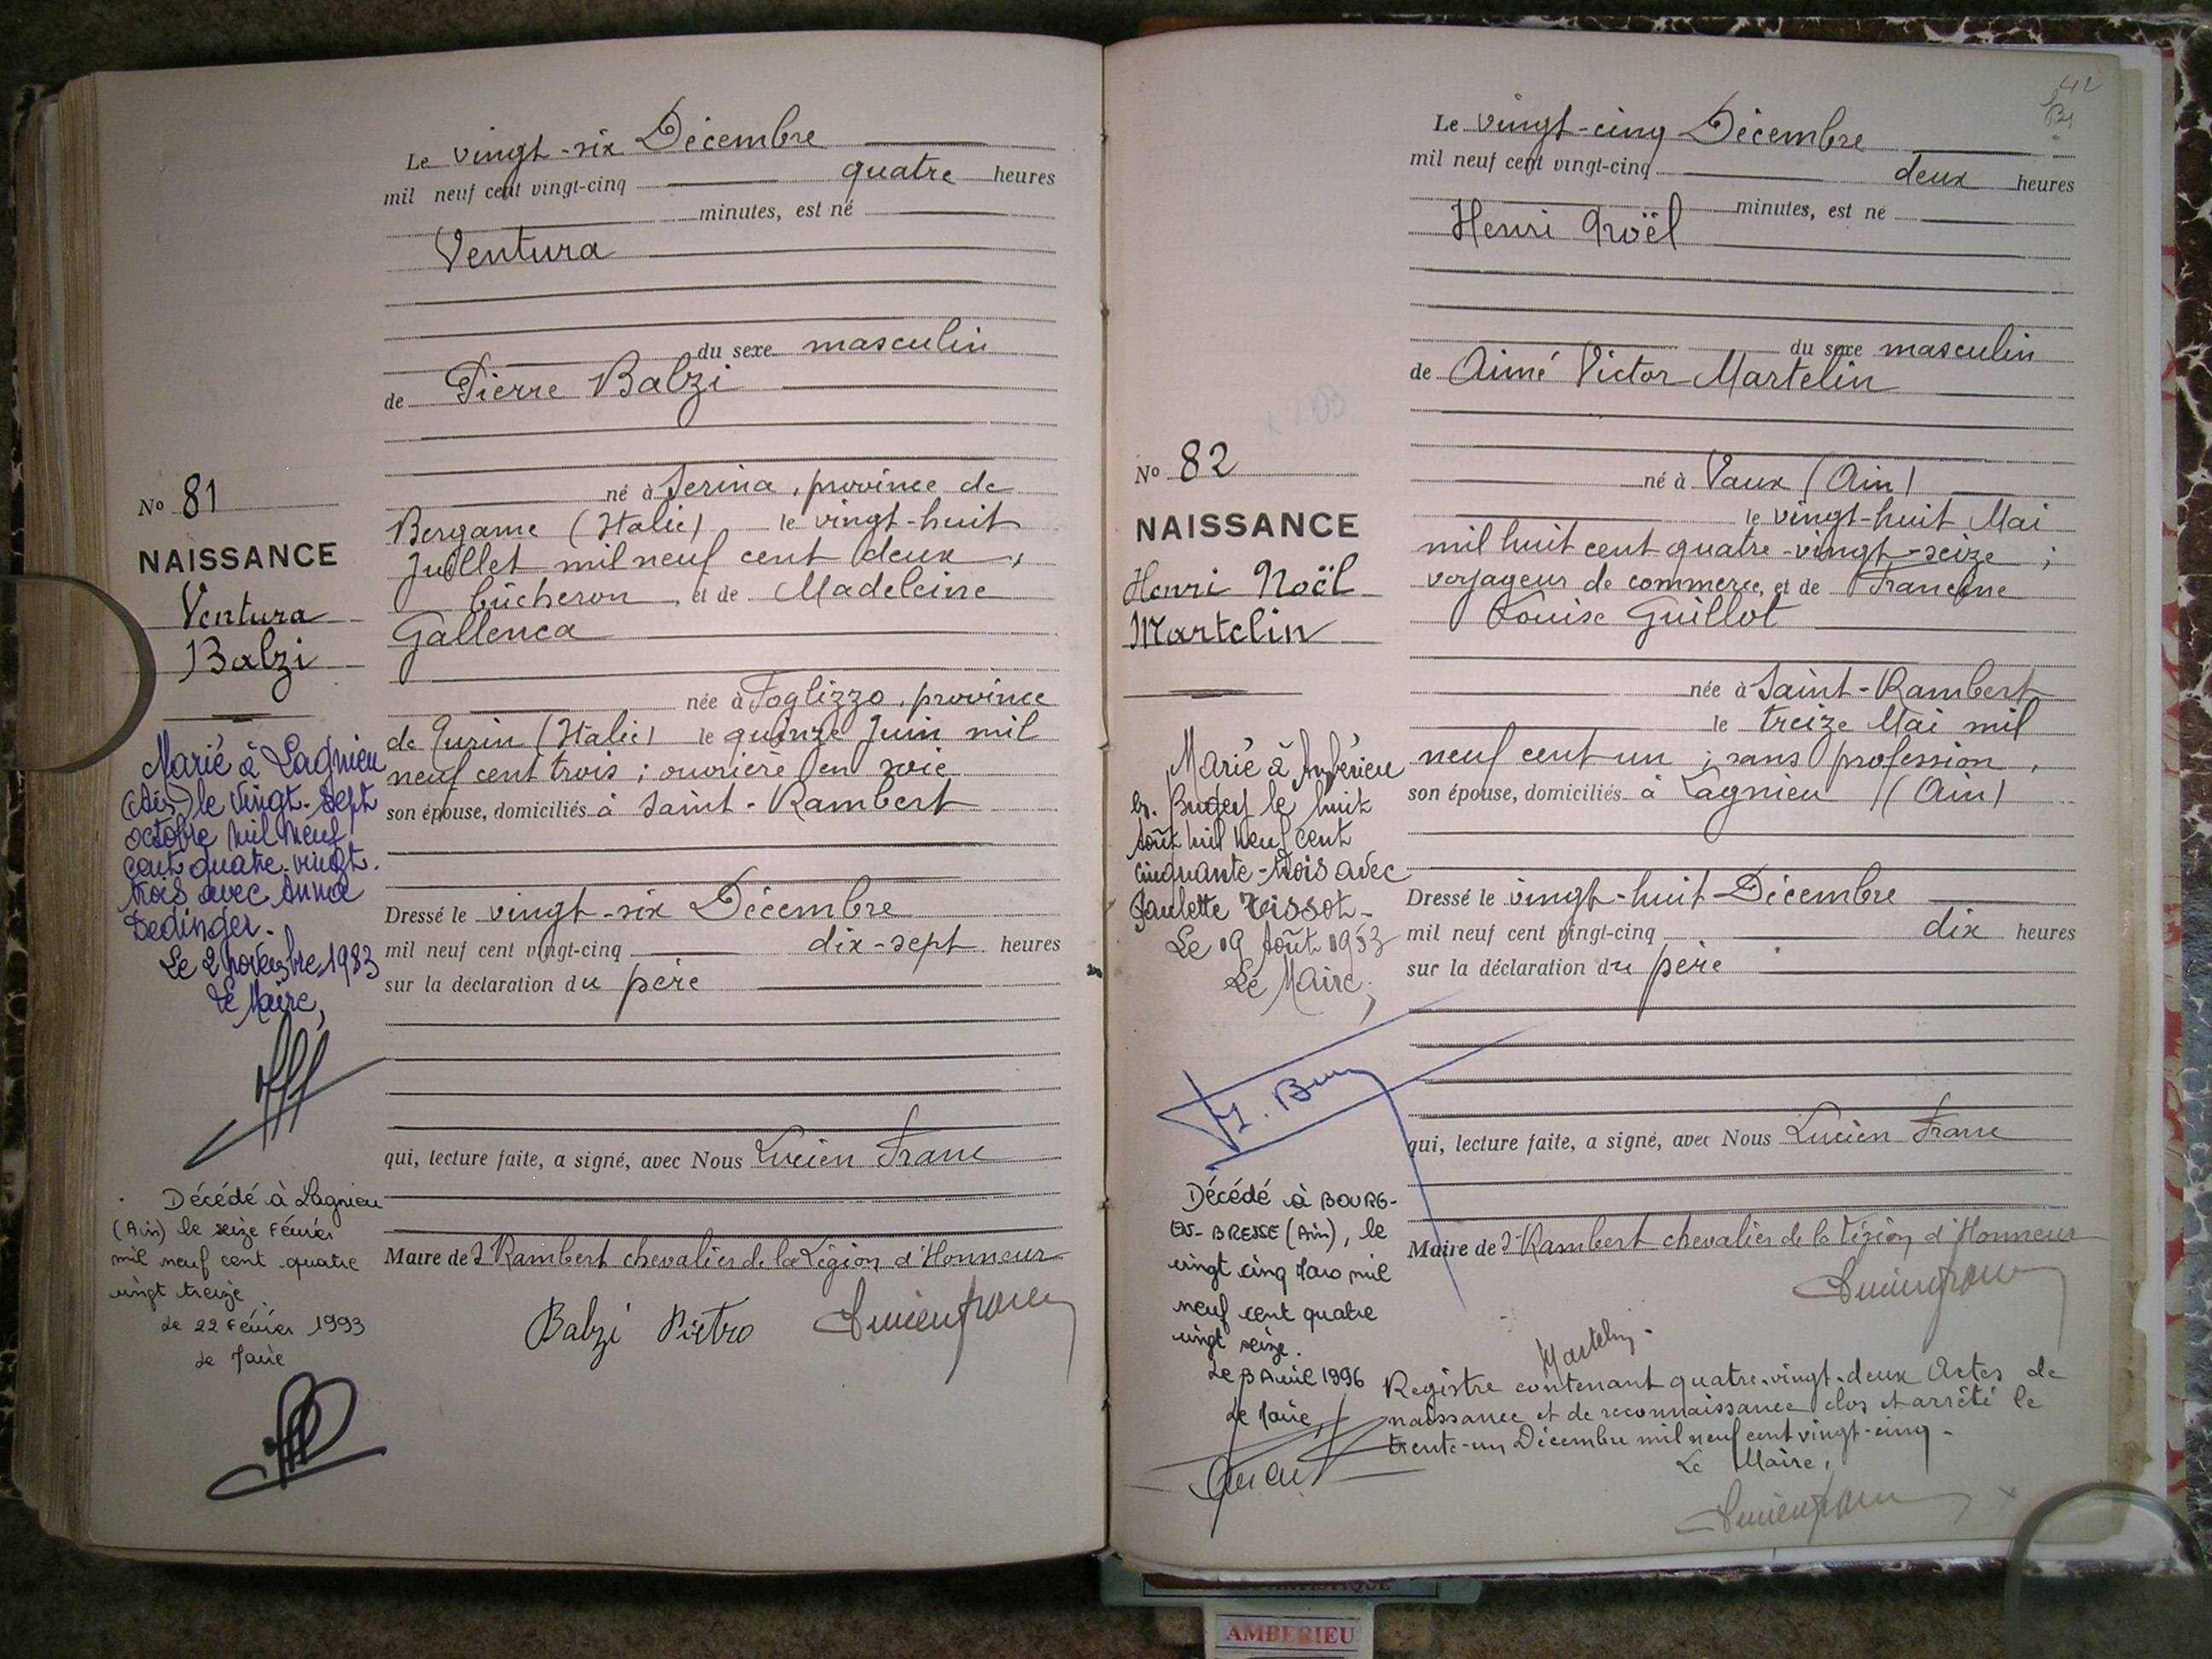 Le vingt-six Décembre
mil neuf cent vingt-cinq quatre heures
minutes, est né
Ventura
du sexe masculin
de Pierre Balzi
né à Serina, province de
Bergame (Italie) le vingt-huit
Juillet mil neuf cent deux,
bûcheron, et de Madeleine
Gallenca
née à Foglizzo, province
de Turin (Italie) le quinze Juin mil
neuf cent trois ; ouvrière en soie
son épouse, domiciliés à Saint-Rambert
Dressé le vingt-six Décembre
mil neuf cent vingt-cinq dix-sept heures
sur la déclaration du père
qui, lecture faite, a signé, avec Nous Lucien Franc
Maire de St Rambert chevalier de la Légion d'Honneur
Balzi Pietro
No 81
NAISSANCE
Ventura
Balzi
Marié à Lagnieu
(Ain) le vingt-sept
octobre mil neuf
cent quatre-vingt-
trois avec Anna
Dedinger.
Le 2 novembre 1983
Le Maire,
Décédé à Lagnieu
(Ain) le seize Février
mil neuf cent quatre
vingt treize.
Le 22 Février 1993
Le Maire
42
Le vingt-cinq Décembre
mil neuf cent vingt-cinq deux heures
minutes, est né
Henri Noël
du sexe masculin
de Aimé Victor Martelin
né à Vaux (Ain)
le vingt-huit Mai
mil huit cent quatre-vingt-seize ;
voyageur de commerce, et de Francine
Louise Guillot
née à Saint-Rambert
le treize Mai mil
neuf cent un ; sans profession,
son épouse, domiciliés à Lagnieu (Ain)
Dressé le vingt-huit Décembre
mil neuf cent vingt-cinq dix heures
sur la déclaration du père
qui, lecture faite, a signé, avec Nous Lucien Franc
Maire de St Rambert chevalier de la Légion d'Honneur
Martelin
Registre contenant quatre-vingt-deux Actes de
naissance et de reconnaissance clos et arrêté le
trente-un Décembre mil neuf cent vingt-cinq.
Le Maire,
No 82
NAISSANCE
Henri Noël
Martelin
Marié à Ambérieu
en Bugey le huit
Août mil neuf cent
cinquante-trois avec
Paulette Tissot.
Le 19 Août 1953
Le Maire,
Décédé à BOURG-
EN-BRESSE (Ain), le
vingt cinq Mars mil
neuf cent quatre
vingt seize.
Le 3 Avril 1996
Le Maire,
AMBERIEU